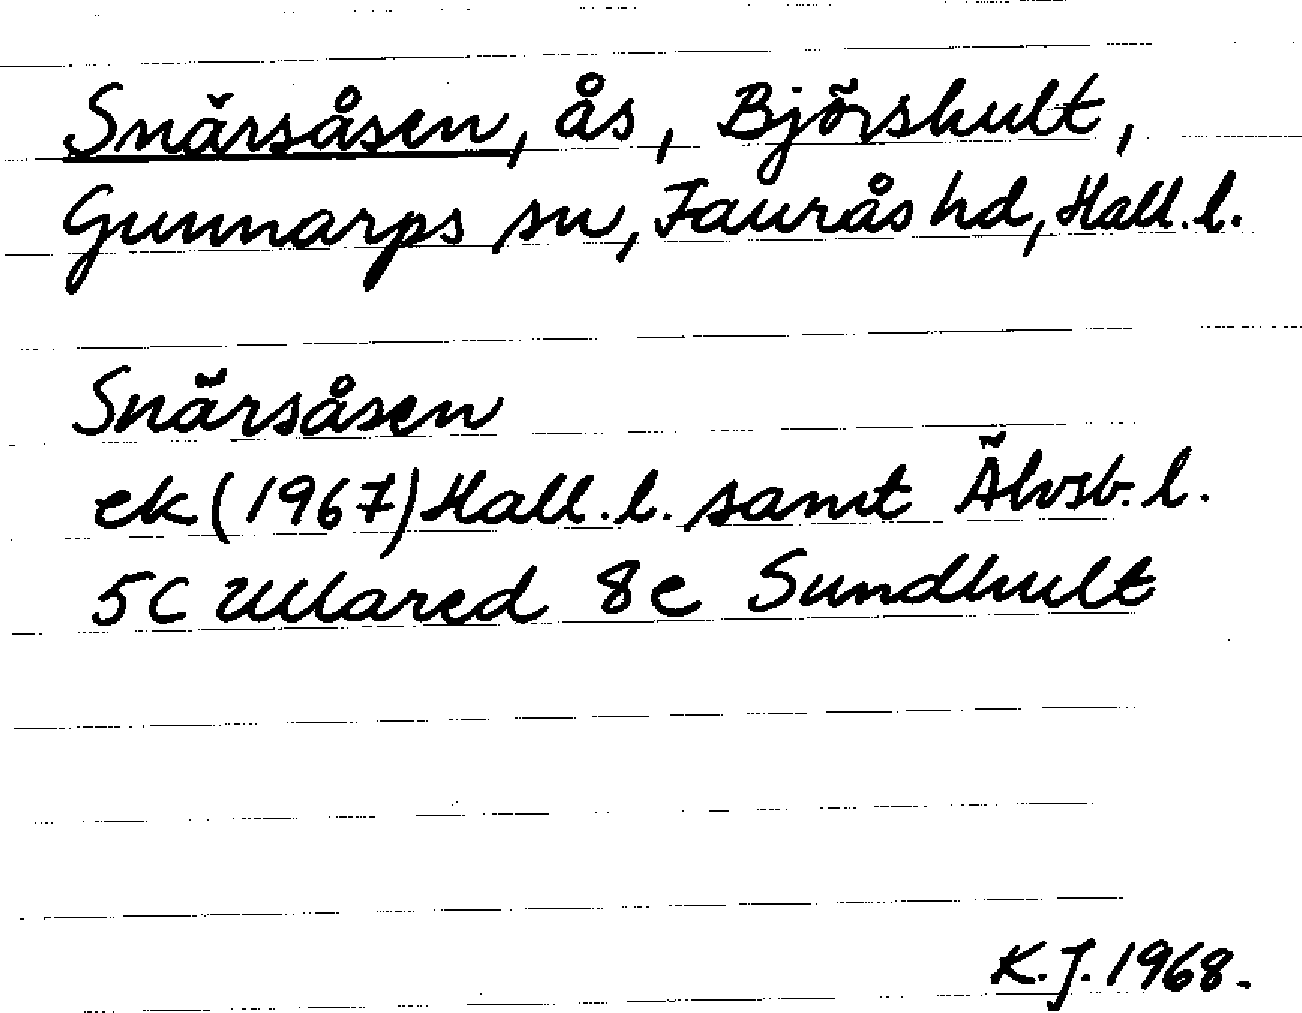 Snärsåsen, ås, Björshult,
Gunnarps sn, Faurås hd, Hall. l.
Snärsåsen
ek (1967) Hall. l. samt Älvsb. l.
5C Ullared 8e Sundhult
K.J. 1968.